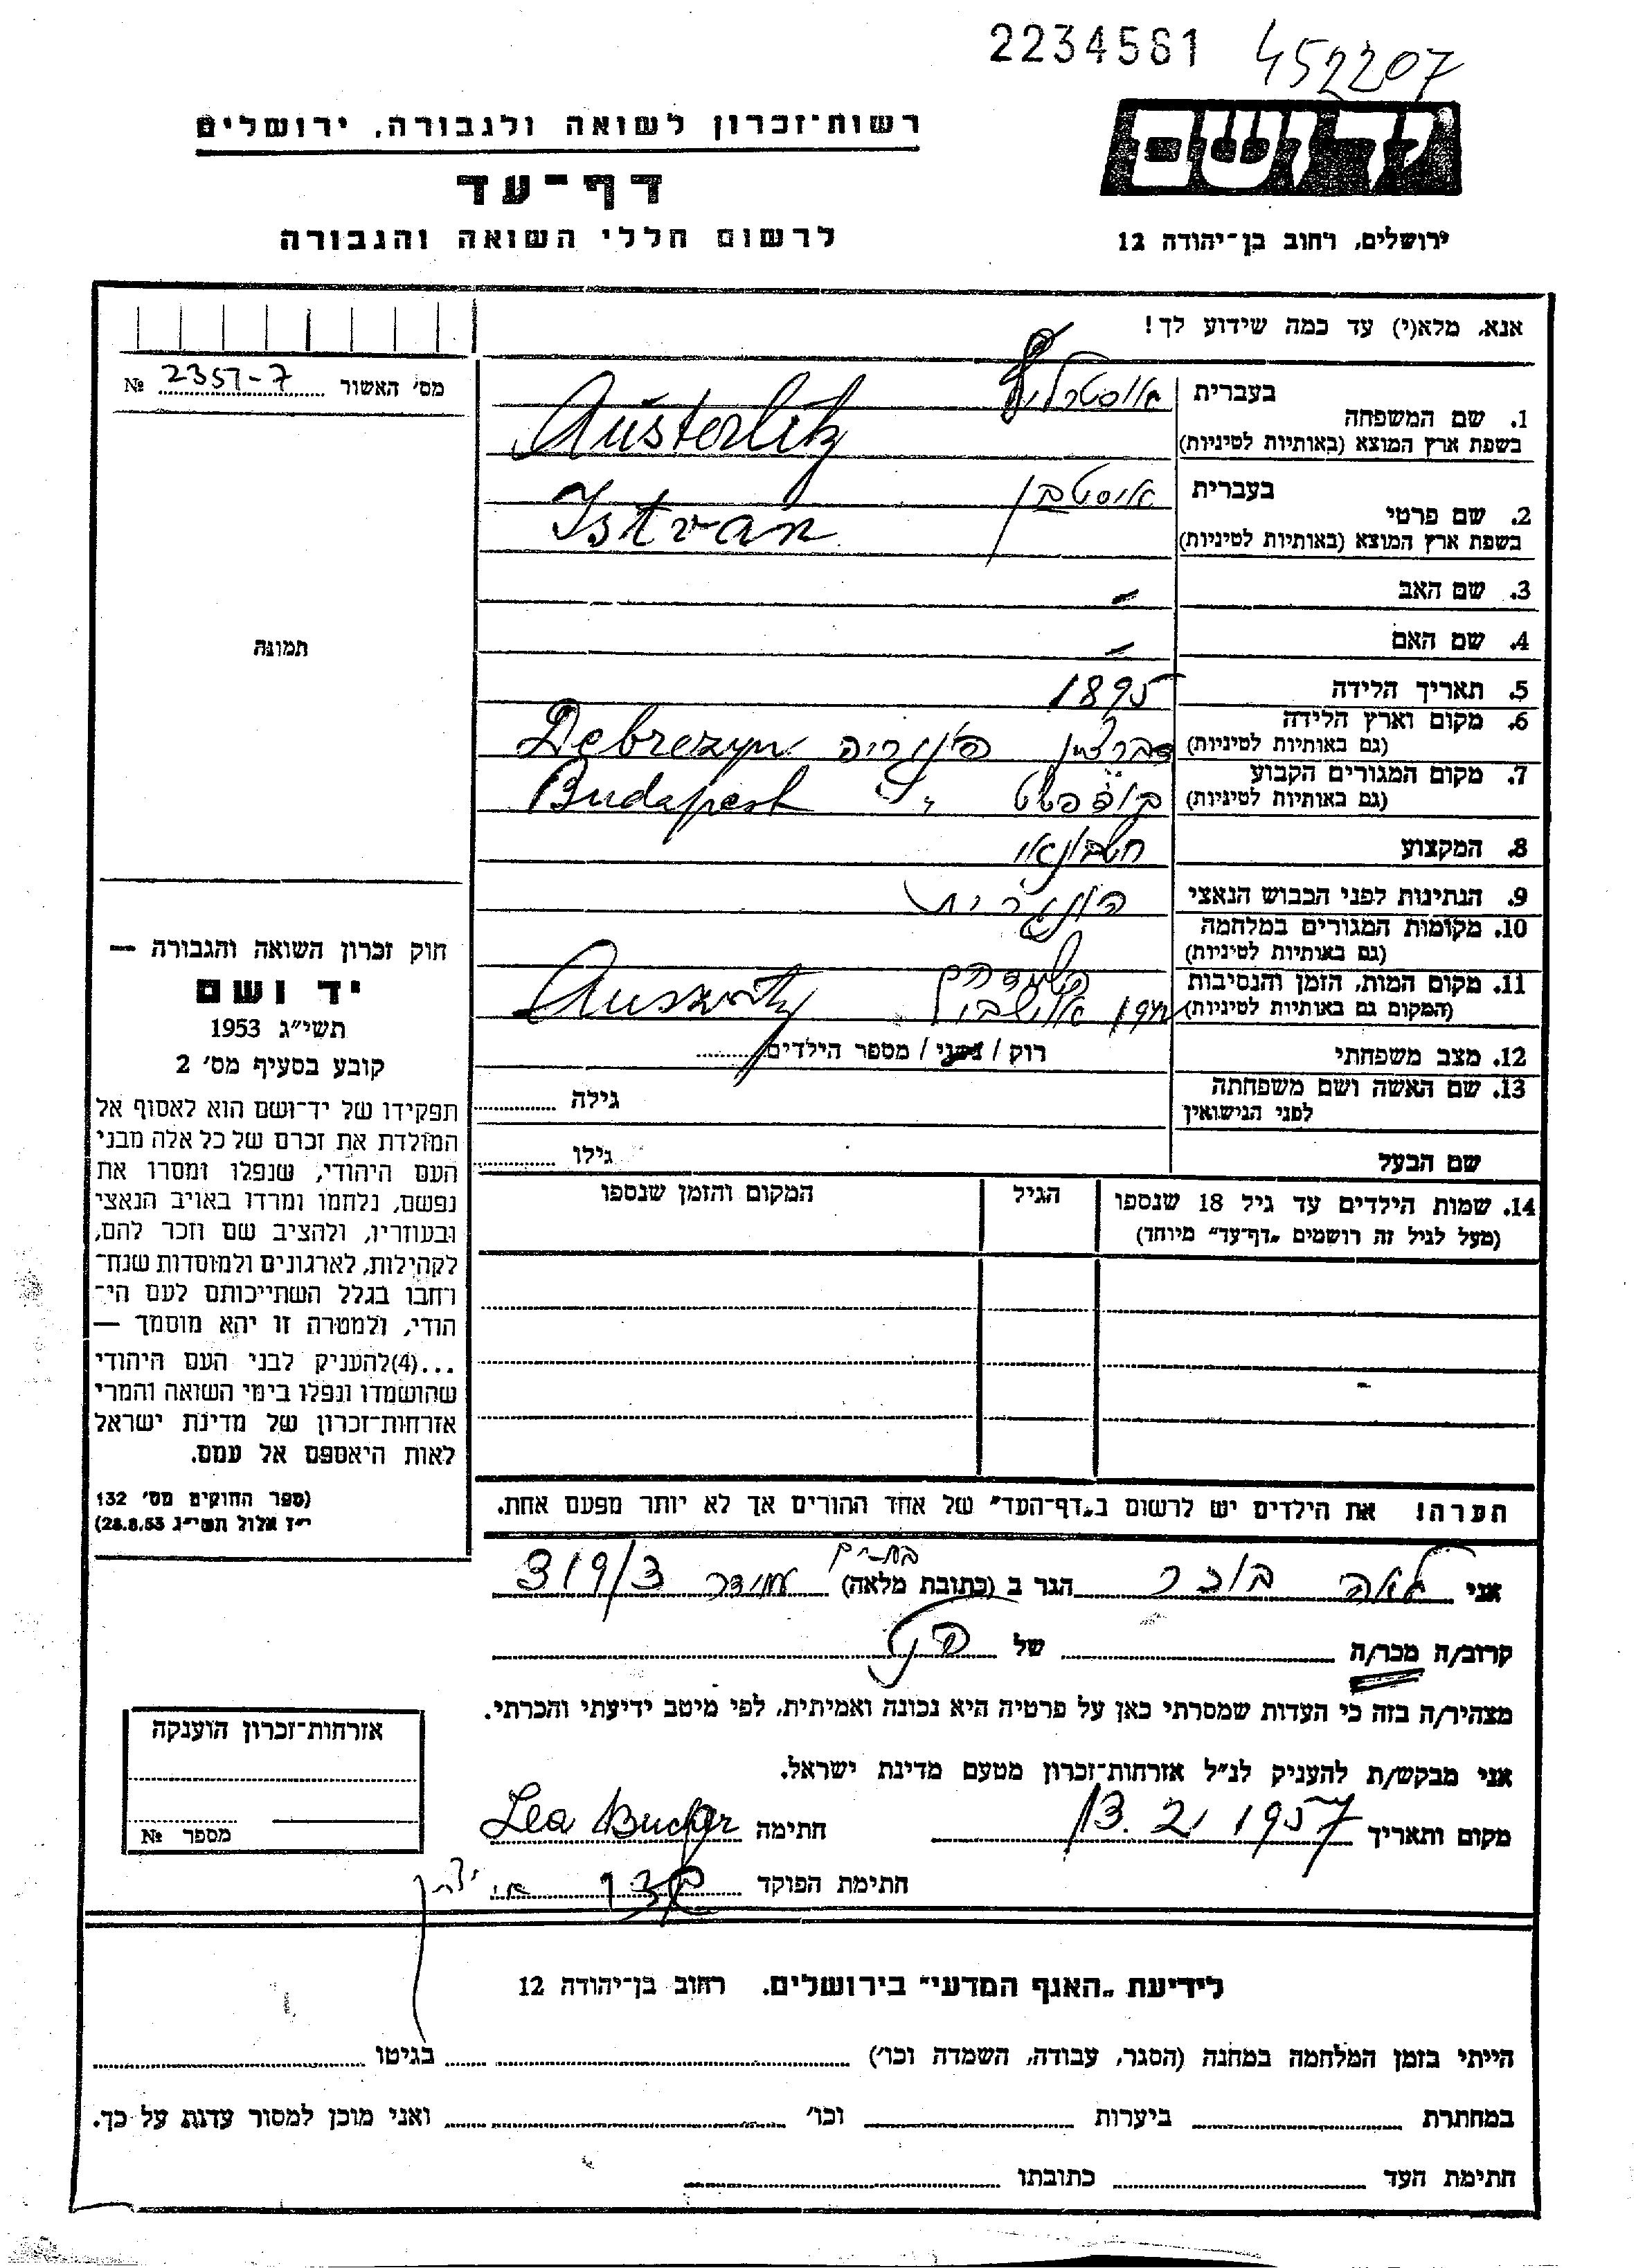 2234561 452207
יד ושם
רשות־זכרון לשואה ולגבורה, ירושלים
דף־עד
לרשום חללי השואה והגבורה
ירושלים, רחוב בן־יהודה 12
אנא, מלא(י) עד כמה שידוע לך!
מס׳ האשור 2351-7 №
תמונה
בעברית אוסטרליץ
1. שם המשפחה
בשפת ארץ המוצא (באותיות לטיניות) Austerlitz
בעברית אישטבן
2. שם פרטי
בשפת ארץ המוצא (באותיות לטיניות) Istvan
3. שם האב –
4. שם האם –
5. תאריך הלידה 1895
6. מקום וארץ הלידה
(גם באותיות לטיניות) דברצין הונגריה Debrezyn
7. מקום המגורים הקבוע
(גם באותיות לטיניות) בודפשט " Budapest
8. המקצוע חשבונאי
9. הנתינות לפני הכבוש הנאצי הונגרית
10. מקומות המגורים במלחמה
(גם באותיות לטיניות)
11. מקום המות, הזמן והנסיבות
(המקום גם באותיות לטיניות) Auswitz
12. מצב משפחתי רוק / נשוי / מספר הילדים
13. שם האשה ושם משפחתה גילה
לפני הנישואין
שם הבעל גילו
14. שמות הילדים עד גיל 18 שנספו הגיל המקום והזמן שנספו
(מעל לגיל זה רושמים „דף־עד” מיוחד)
חוק זכרון השואה והגבורה —
יד ושם
תשי״ג 1953
קובע בסעיף מס׳ 2
תפקידו של יד־ושם הוא לאסוף אל
המולדת את זכרם של כל אלה מבני
העם היהודי, שנפלו ומסרו את
נפשם, נלחמו ומרדו באויב הנאצי
ובעוזריו, ולהציב שם וזכר להם,
לקהילות, לארגונים ולמוסדות שנח־
רחבו בגלל השתייכותם לעם הי־
הודי, ולמטרה זו יהא מוסמך —
...(4) להעניק לבני העם היהודי
שהושמדו ונפלו בימי השואה והמרי
אזרחות־זכרון של מדינת ישראל
לאות היאספם אל עמם.
(ספר החוקים מס׳ 132
י״ז אלול תשי״ג 28.8.53)
הערה! את הילדים יש לרשום ב„דף־העד” של אחד ההורים אך לא יותר מפעם אחת.
אני לאה בוכר הגר ב (כתובת מלאה) בת-ים עמידר 319/3
קרוב/ה מכר/ה של הנ״ל
מצהיר/ה בזה כי העדות שמסרתי כאן על פרטיה היא נכונה ואמיתית, לפי מיטב ידיעתי והכרתי.
אני מבקש/ת להעניק לנ״ל אזרחות־זכרון מטעם מדינת ישראל.
מקום ותאריך 13.2.1957 חתימה Lea Bucher
חתימת הפוקד
אזרחות־זכרון הוענקה
מספר №
לידיעת „האגף המדעי” בירושלים, רחוב בן־יהודה 12
הייתי בזמן המלחמה במחנה (הסגר, עבודה, השמדה וכו׳) בגיטו
במחתרת ביערות וכו׳ ואני מוכן למסור עדות על כך.
חתימת העד כתובתו